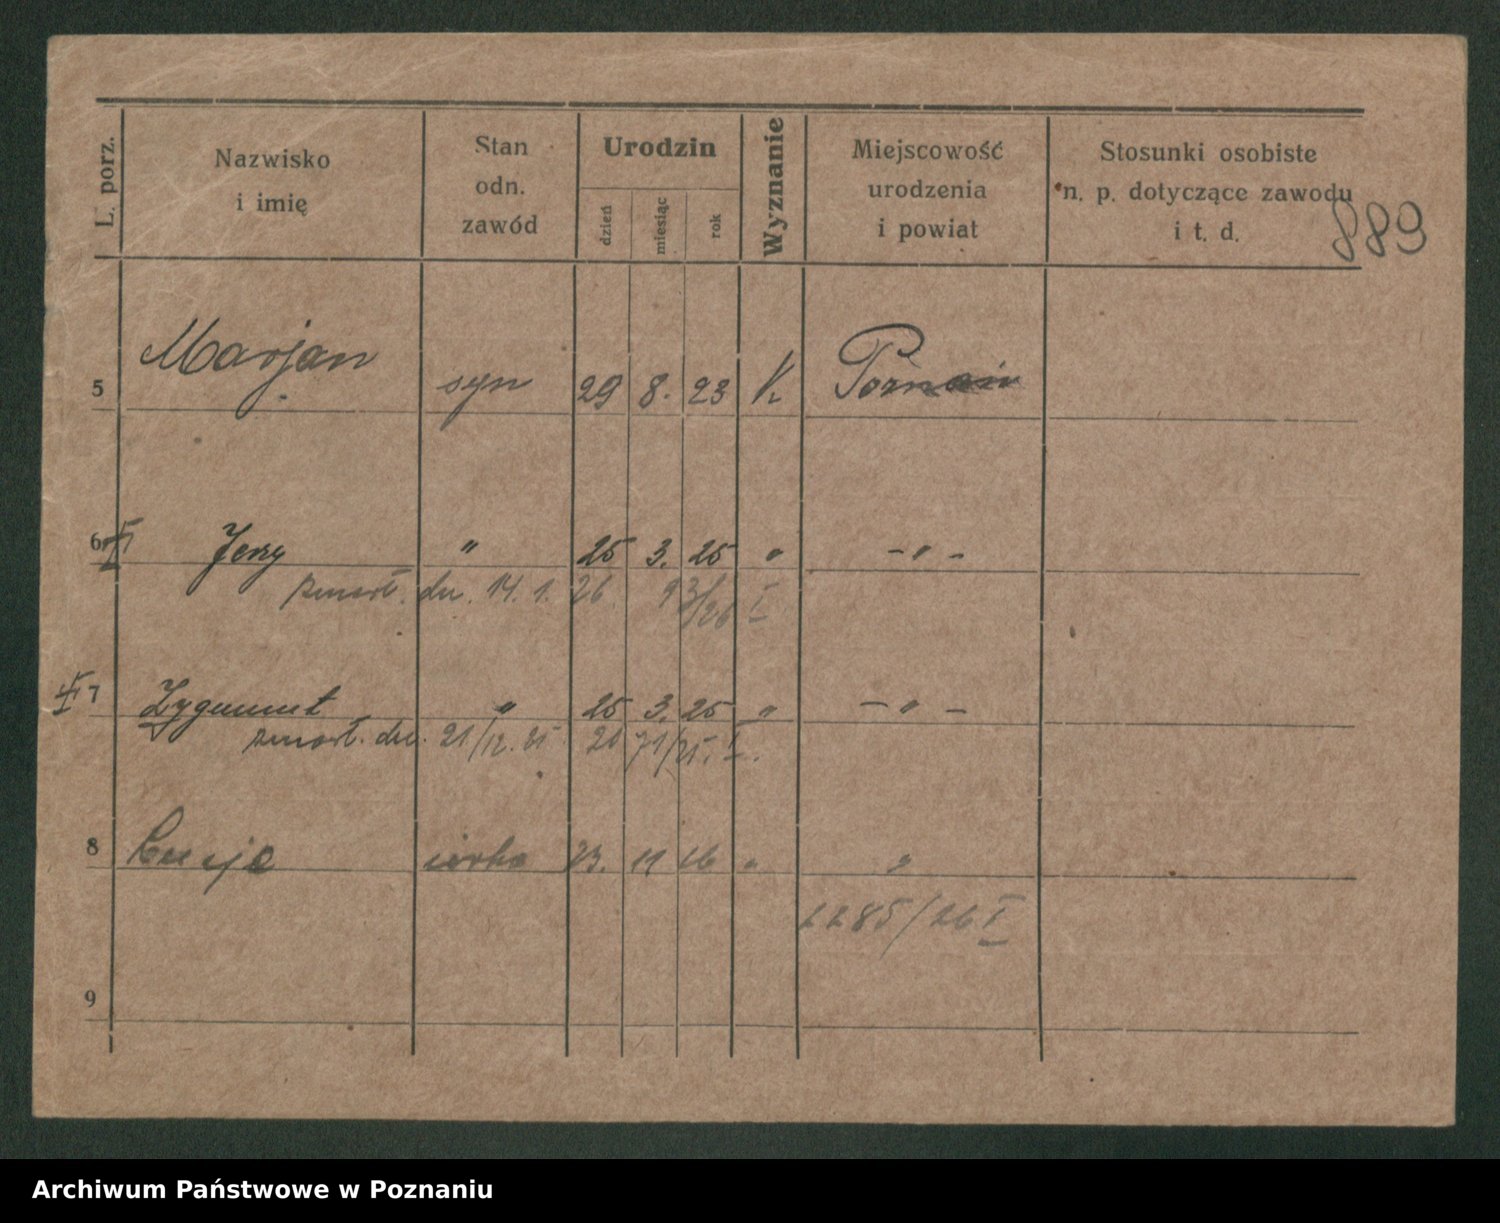 L. porz.
Nazwisko
i imię
Stan
odn.
zawód
Urodzin
dzień
miesiąc
rok
Wyznanie
Miejscowość
urodzenia
i powiat
Stosunki osobiste
n. p. dotyczące zawodu
i t. d.
889
5 Marjan syn 29 8. 23 K Poznań
6 Jerzy " 25 3. 25 " - " -
zmarł. dn. 14. 1. 26. 93/26 I
7 Zygmunt " 25 3. 25 " - " -
zmarł. dn. 21/12. 25 71/25. I.
8 Łucja córka 23. 11 16 " "
2285/26 I
9
Archiwum Państwowe w Poznaniu